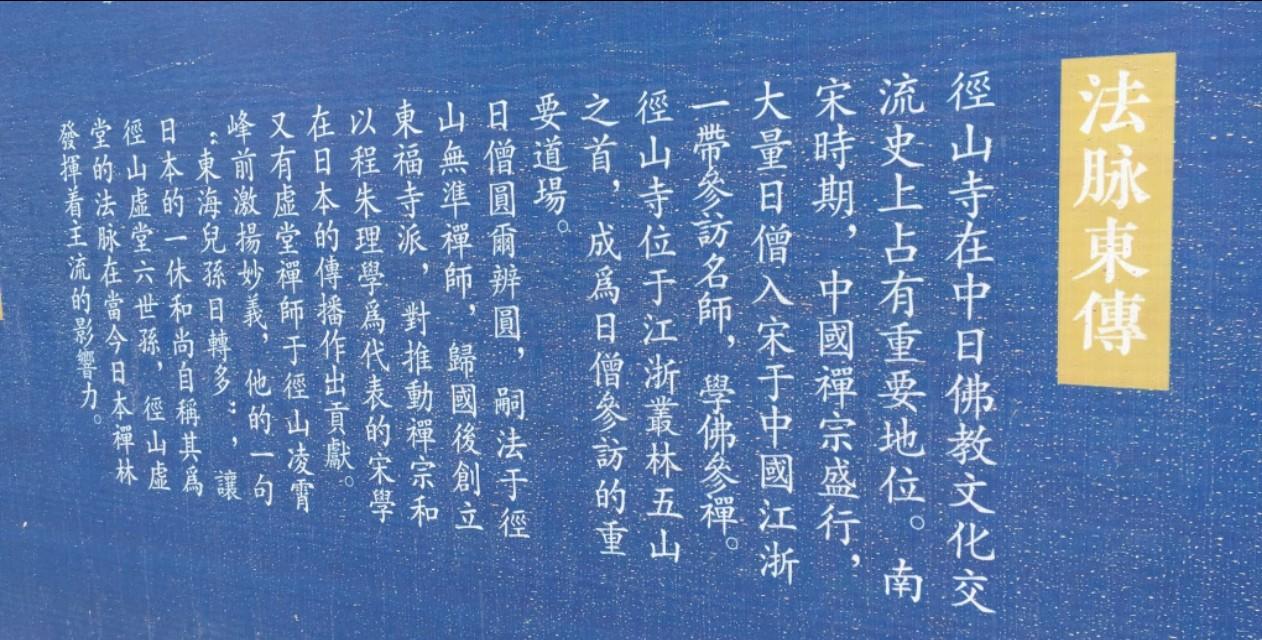 法脉東傳
徑山寺在中日佛教文化交
流史上占有重要地位。南
宋時期，中國禪宗盛行，
大量日僧入宋于中國江浙
一帶參訪名師，學佛參禪。
徑山寺位于江浙叢林五山
之首，成爲日僧參訪的重
要道場。
日僧圓爾辨圓，嗣法于徑
山無準禪師，歸國後創立
東福寺派，對推動禪宗和
以程朱理學爲代表的宋學
在日本的傳播作出貢獻。
又有虛堂禪師于徑山凌霄
峰前激揚妙義，他的一句
：東海兒孫日轉多：，讓
日本的一休和尚自稱其爲
徑山虛堂六世孫，徑山虛
堂的法脉在當今日本禪林
發揮着主流的影響力。